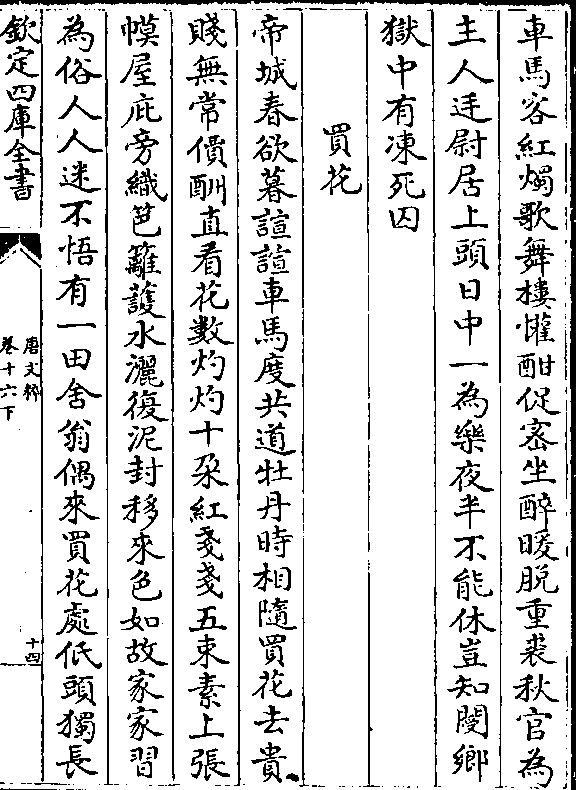 車馬客紅燭歌舞樓懽酣促宻坐醉暖脱重裘秋官為
主人廷尉居上頭日中一為樂夜半不能休豈知閿鄉
獄中有凍死囚
買花
帝城春欲暮諠諠車馬度共道牡丹時相隨買花去貴
賤無常價酬直看花數灼灼十朶紅戔戔五束素上張
幙屋庇旁織笆籬護水灑復泥封移來色如故家家習
為俗人人迷不悟有一田舍翁偶來買花處低頭獨長
欽定四庫全書
唐文粹
卷十六下
十四